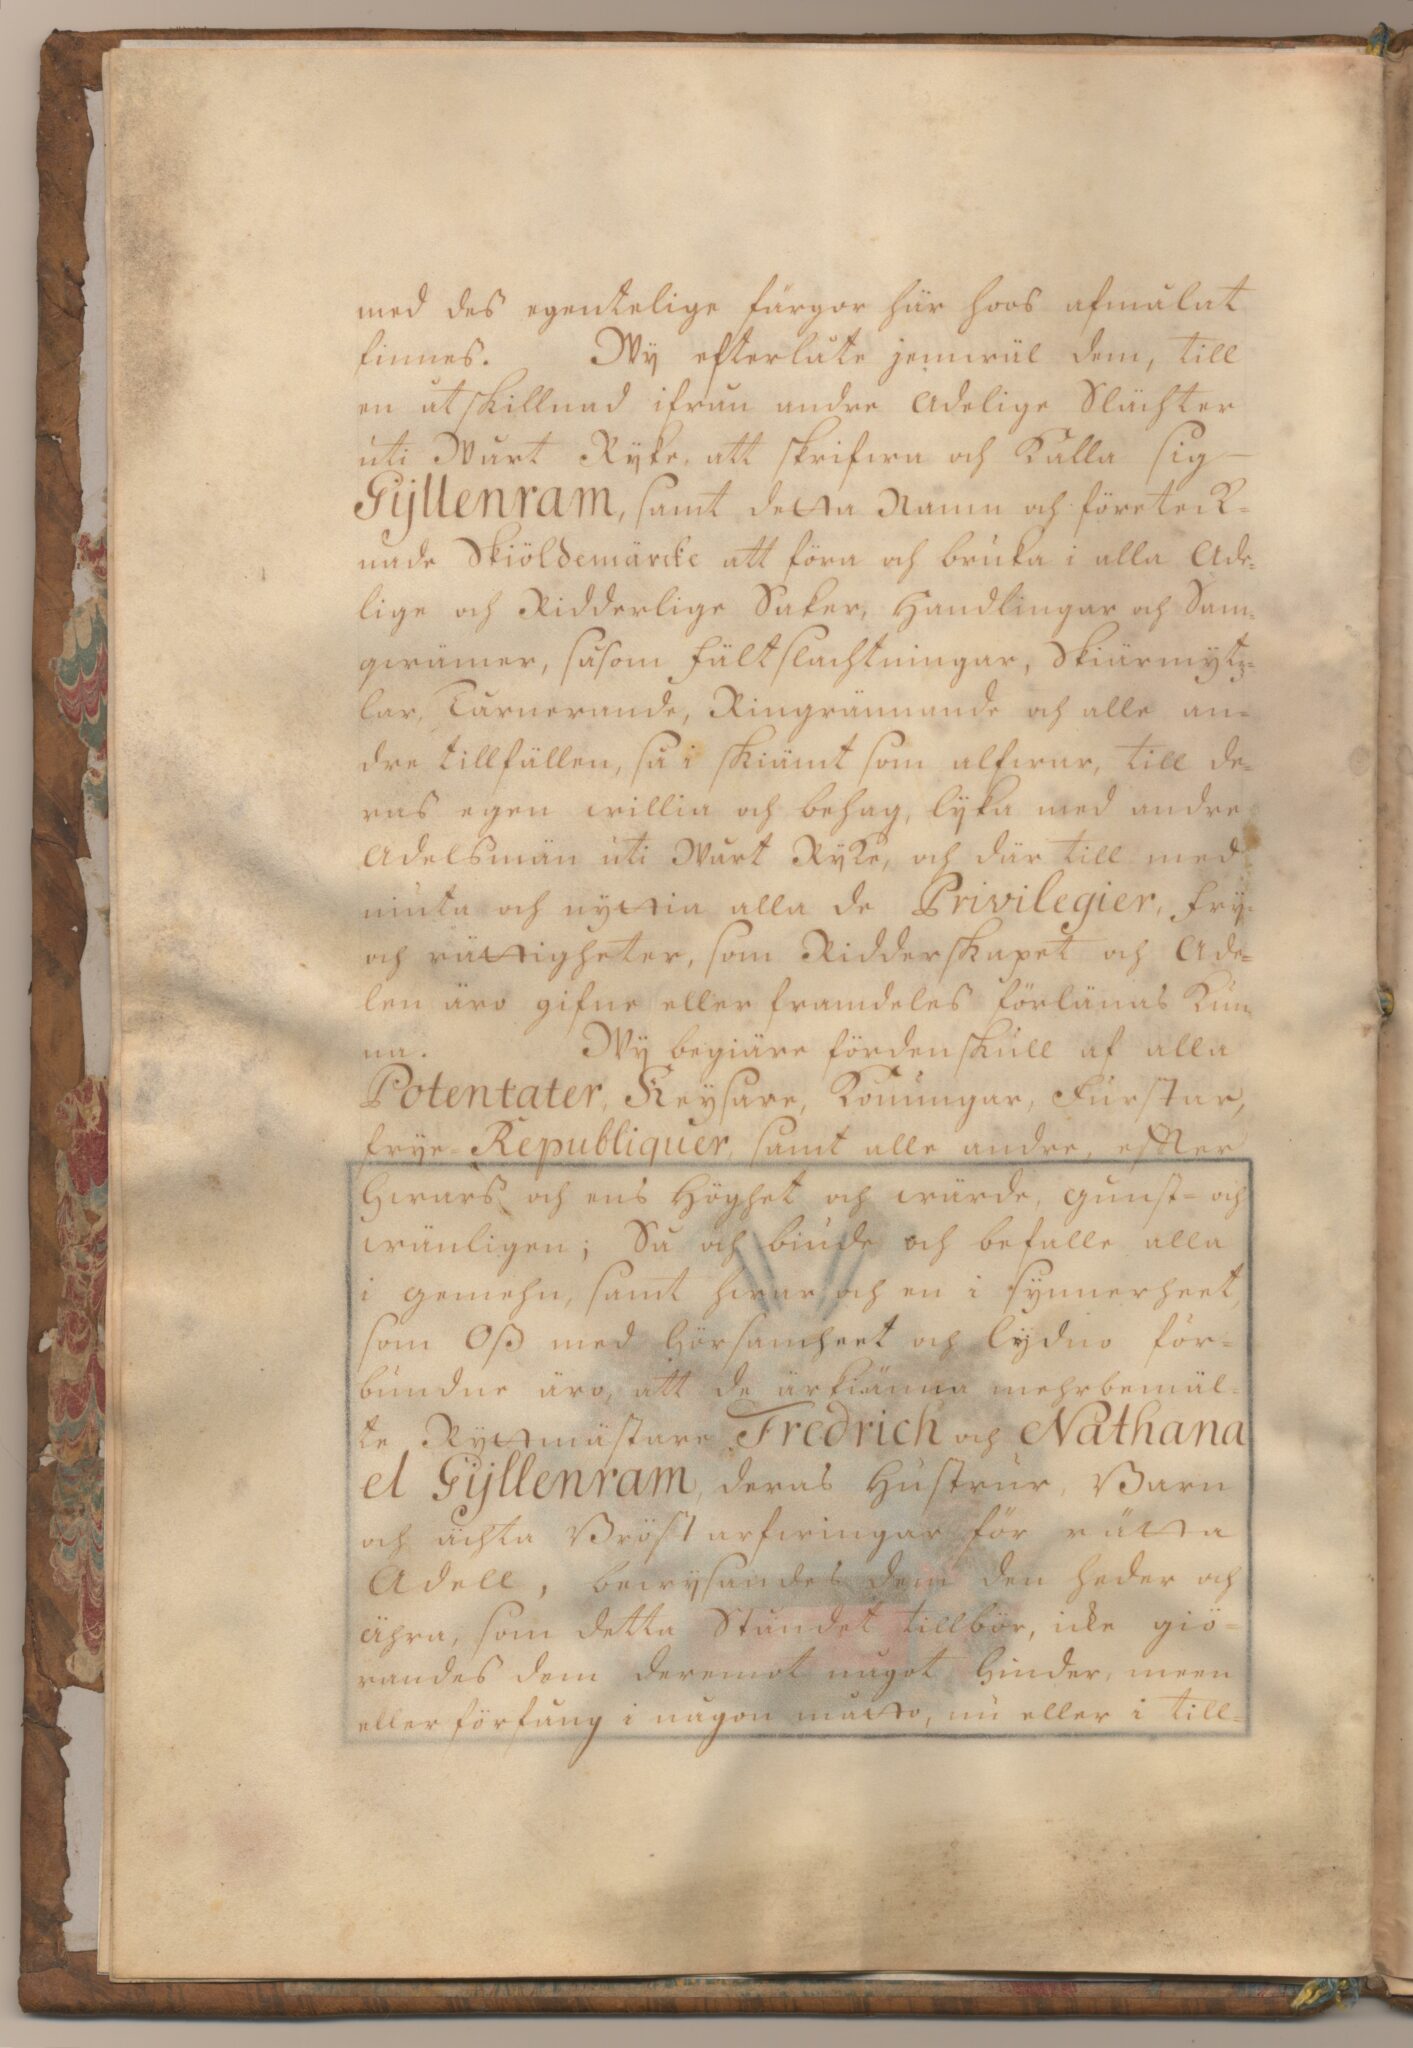 med des egentelige färgor här hoos afmålat
finnes. Wÿ efterlåte jemwäl dem, till
en åtskillnad ifrån andre Adelige Slächter
uti Wårt Ryke, att skrifwa och Kalla sig
Gÿllenram, samt detta Namn och företeck-
nade Skiöldemärcke att föra och bruka i alla Ade-
lige och Ridderlige Saker, Handlingar och Sam-
qwämer, såsom fältslachtningar, Skiärmytz-
lar, Turnerande, Ringrännande och alle an-
dre tillfällen, så i skiämt som alfwar, till de-
ras egen willia och behag, lÿka med andre
Adelsmän uti Wårt Rÿke, och där till med
niuta och nyttia alla de Privilegier, fry-
och rättigheter, som Ridderskapet och Ade-
len äro gifne eller framdeles förlänas Kun-
na. Wÿ begiäre fördenskull af alla
Potentater, Keysare, Konungar, Furstar,
frye Republiquer, samt alle andre, efter
hwars och ens Höghet och wärde, gunst- och
wänligen; Så och biude och befalle alla
i gemehn, samt hwar och en i synnerheet,
som Oß med hörsamheet och lÿdno för-
bundne äro, att de ärkiänna mehrbemäl-
te Ryttmästare Fredrich och Nathana
el Gÿllenram, deras Hustrur, Barn
och ächta Bröstarfwingar för rätta
Adell, bewysandes dem den heder och
ähra, som detta Ståndet tillbör, icke giö-
randes dem deremot något hinder, meen
eller förfång i någon matto, nu eller i till-